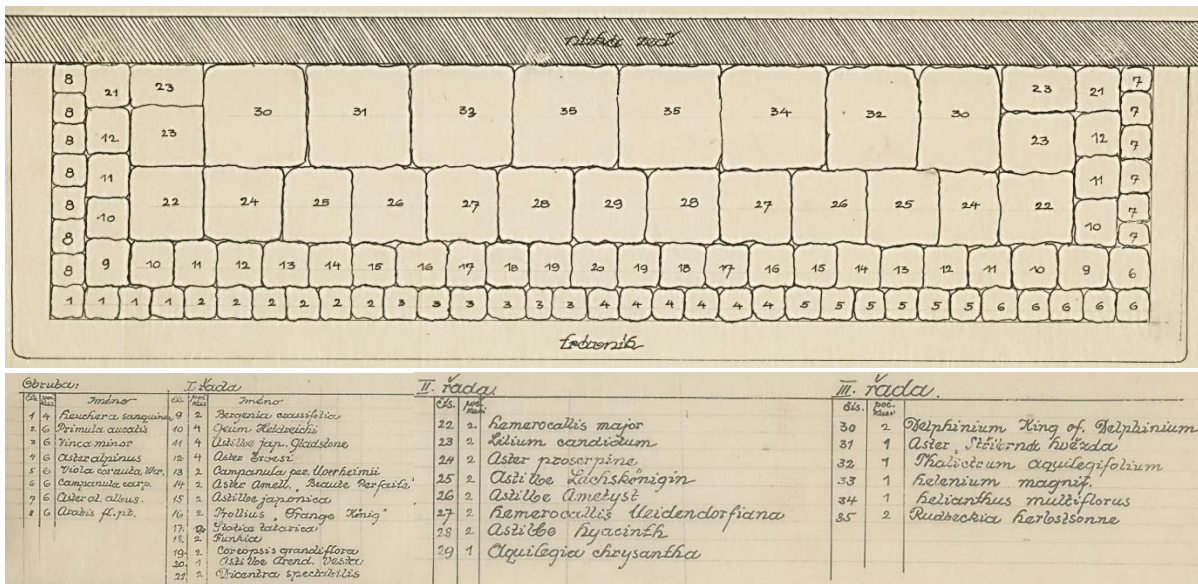 zeď
8 21 23 23 21 7
30 31 33 35 35 34 32 30
8 7
8 12 23 23 12 7
8 11 11 7
8 22 24 25 26 27 28 29 28 27 26 25 24 22 7
8 10 10 7
8 9 10 11 12 13 14 15 16 17 18 19 20 19 18 17 16 15 14 13 12 11 10 9 6
1 1 1 1 2 2 2 2 2 2 3 3 3 3 3 3 4 4 4 4 4 4 5 5 5 5 5 5 6 6 6 6 6
trávník
Obruba:
čís. poč. kusů Jméno
1 4 Heuchera sanguinea
2 6 Primula acaulis
3 6 Vinca minor
4 6 Aster alpinus
5 6 Viola cornuta
6 6 Campanula carp.
7 6 Aster al. albus
8 6 Arabis fl. pl.
I. řada
čís. poč. kus Jméno
9 2 Bergenia crassifolia
10 4 Geum Heldreichi
11 4 Astilbe jap. Gladstone
12 4 Aster
13 2 Campanula
14 2 Aster Amell. „Beauté Parfaite"
15 2 Astilbe japonica
16 2 Trollius „Orange König"
17. 2 Statice tatarica
18. 2 Funkia
19. 2 Coreopsis grandiflora
20. 1 Astilbe Arend. Vesta
21. 2 Dicentra spectabilis
II. řada
čís. poč. kusů
22 2 Hemerocallis major
23 2 Lilium candidum
24 2 Aster proserpine
25 2 Astilbe „Lachskönigin
26 2 Astilbe Ametyst
27 2 Hemerocallis
28 2 Astilbe hyacinth
29 1 Aquilegia chrysantha
III. řada
čís. poč. kusů
30 2 Delphinium King of. Delphinium
31 1 Aster „Stříbrná hvězda
32 1 Thalictrum aquilegifolium
33 1 Helenium magnif.
34 1 Helianthus multiflorus
35 2 Rudbeckia Herbstsonne